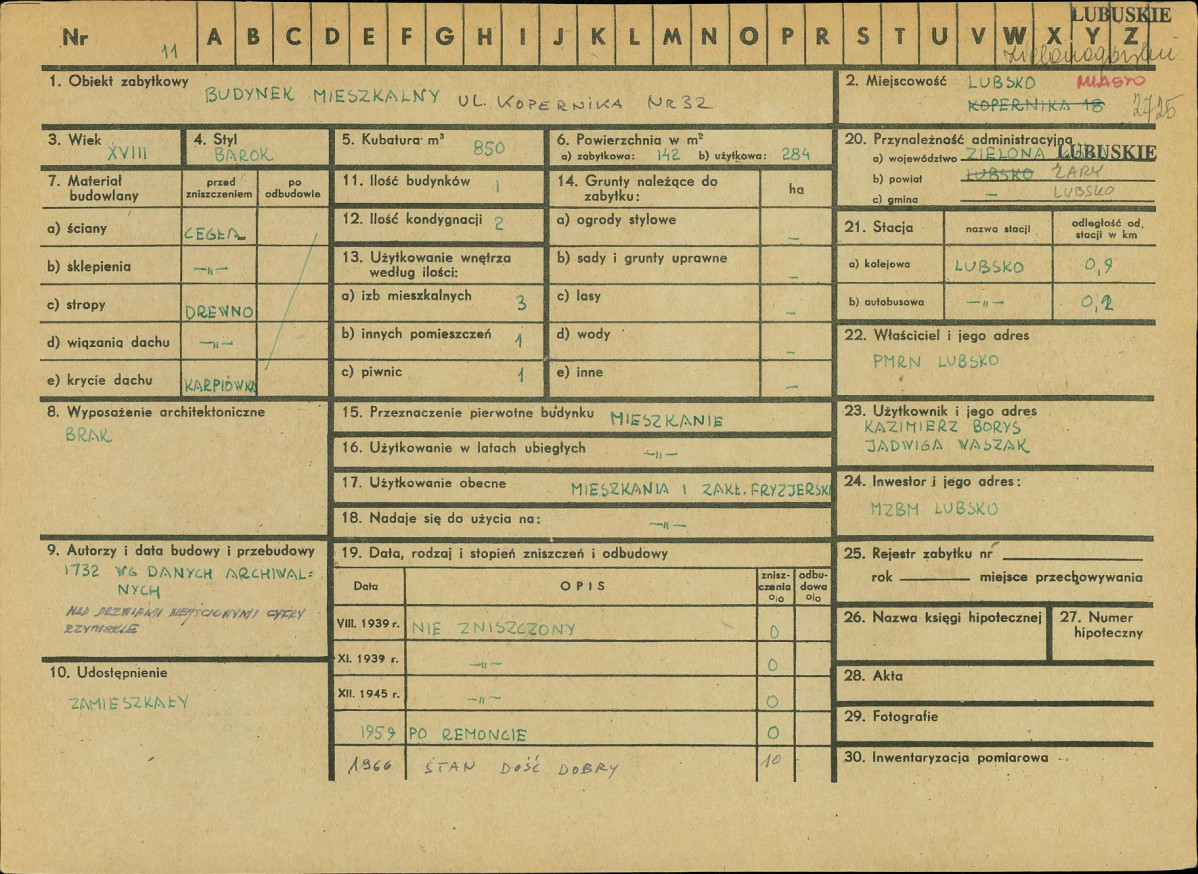 LUBUSKIE
Nr 11 A B C D E F G H I J K L M N O P R S T U V W X Y Z
1. Obiekt zabytkowy
BUDYNEK MIESZKALNY UL. KOPERNIKA NR 32
2. Miejscowość LUBSKO MIASTO
KOPERNIKA 18 2725
3. Wiek
XVIII
4. Styl
BAROK
5. Kubatura m³ 850
6. Powierzchnia w m²
a) zabytkowa: 142 b) użytkowa: 284
20. Przynależność administracyjna
a) województwo ZIELONA LUBUSKIE
b) powiat LUBSKO ŻARY
c) gmina — LUBSKO
7. Materiał budowlany
przed zniszczeniem
po odbudowie
a) ściany CEGŁA
b) sklepienia —„—
c) stropy DREWNO
d) wiązania dachu —„—
e) krycie dachu KARPIÓWKA
11. Ilość budynków 1
12. Ilość kondygnacji 2
13. Użytkowanie wnętrza
według ilości:
a) izb mieszkalnych 3
b) innych pomieszczeń 1
c) piwnic 1
14. Grunty należące do
zabytku:
ha
a) ogrody stylowe —
b) sady i grunty uprawne —
c) lasy —
d) wody —
e) inne —
21. Stacja
nazwa stacji
odległość od,
stacji w km
a) kolejowa LUBSKO 0,9
b) autobusowa —„— 0,2
22. Właściciel i jego adres
PMRN LUBSKO
8. Wyposażenie architektoniczne
BRAK
15. Przeznaczenie pierwotne budynku MIESZKANIE
16. Użytkowanie w latach ubiegłych —„—
17. Użytkowanie obecne MIESZKANIA I ZAKŁ. FRYZJERSKI
18. Nadaje się do użycia na: —„—
23. Użytkownik i jego adres
KAZIMIERZ BORYS
JADWIGA WASZAK
24. Inwestor i jego adres:
MZBM LUBSKO
9. Autorzy i data budowy i przebudowy
1732 WG DANYCH ARCHIWAL=
NYCH
NAD DRZWIAMI WEJŚCIOWYMI CYFRY
RZYMSKIE
10. Udostępnienie
ZAMIESZKAŁY
19. Data, rodzaj i stopień zniszczeń i odbudowy
Data
OPIS
znisz-
czenia
o/o
odbu-
dowa
o/o
VIII. 1939 r. NIE ZNISZCZONY 0
XI. 1939 r. —„— 0
XII. 1945 r. —„— 0
1959 PO REMONCIE 0
1966 STAN DOŚĆ DOBRY 10
25. Rejestr zabytku nr
rok miejsce przechowywania
26. Nazwa księgi hipotecznej
27. Numer
hipoteczny
28. Akta
29. Fotografie
30. Inwentaryzacja pomiarowa